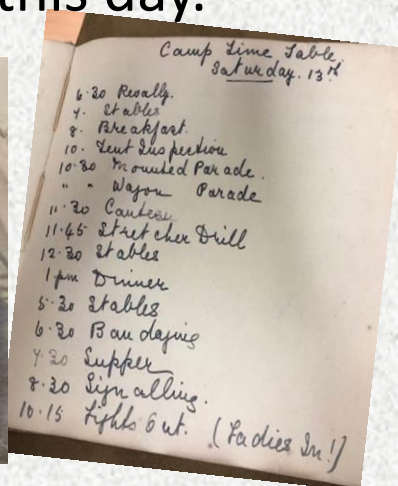 this day.
Camp Time Table
Saturday. 13th
6.30 Revally.
7. Stables
8. Breakfast.
10. Tent Inspection
10.30 Mounted Parade.
" " Wagon Parade
11.30 Canteen
11.45 Stretcher Drill
12.30 Stables
1 pm Dinner
5.30 Stables
6.30 Bandaging
7.30 Supper
8.30 Signalling.
10.15 Lights Out. (Ladies In!)